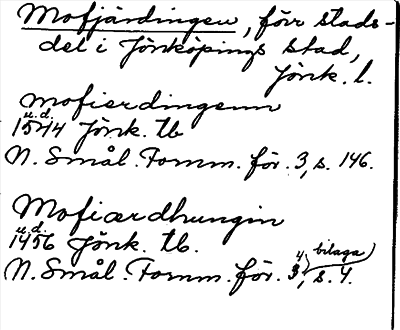 Mofjärdingen, förr stads-
del i Jönköpings stad,
Jönk. l.
Mofierdingenn
u.d.
1544 Jönk. tb
N. Smål. Fornm. för. 3, s. 146.
Mofiærdhungin
u.d.
1456 Jönk. tb.
N. Smål. Fornm. för. 3, 4 bilaga) s. 4.